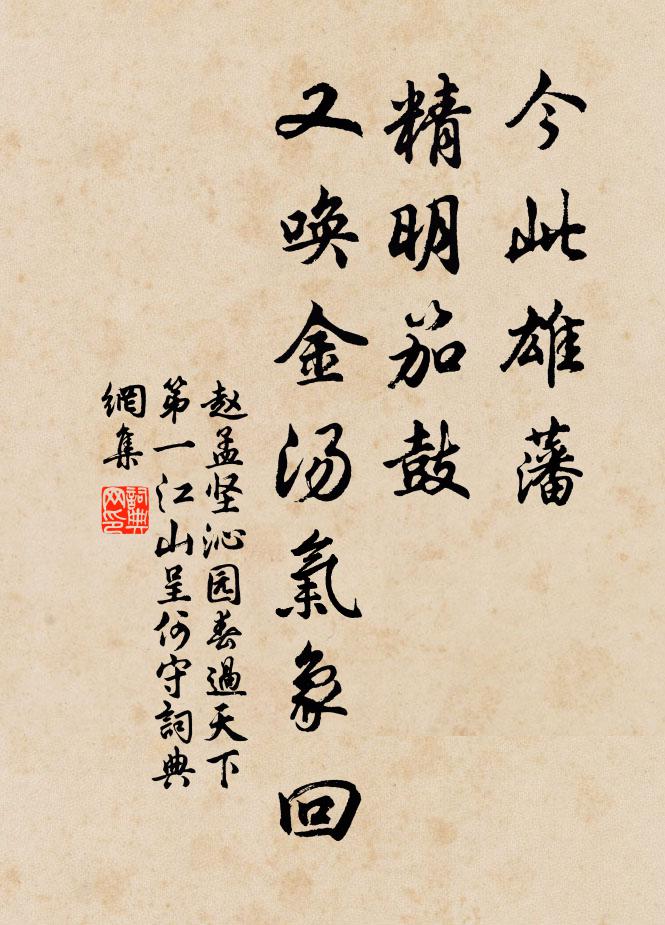 今此雄藩
精明笳鼓
又唤金汤氣象回
赵孟坚沁园春過天下
第一江山呈何守詞典
網集
詞典
网印